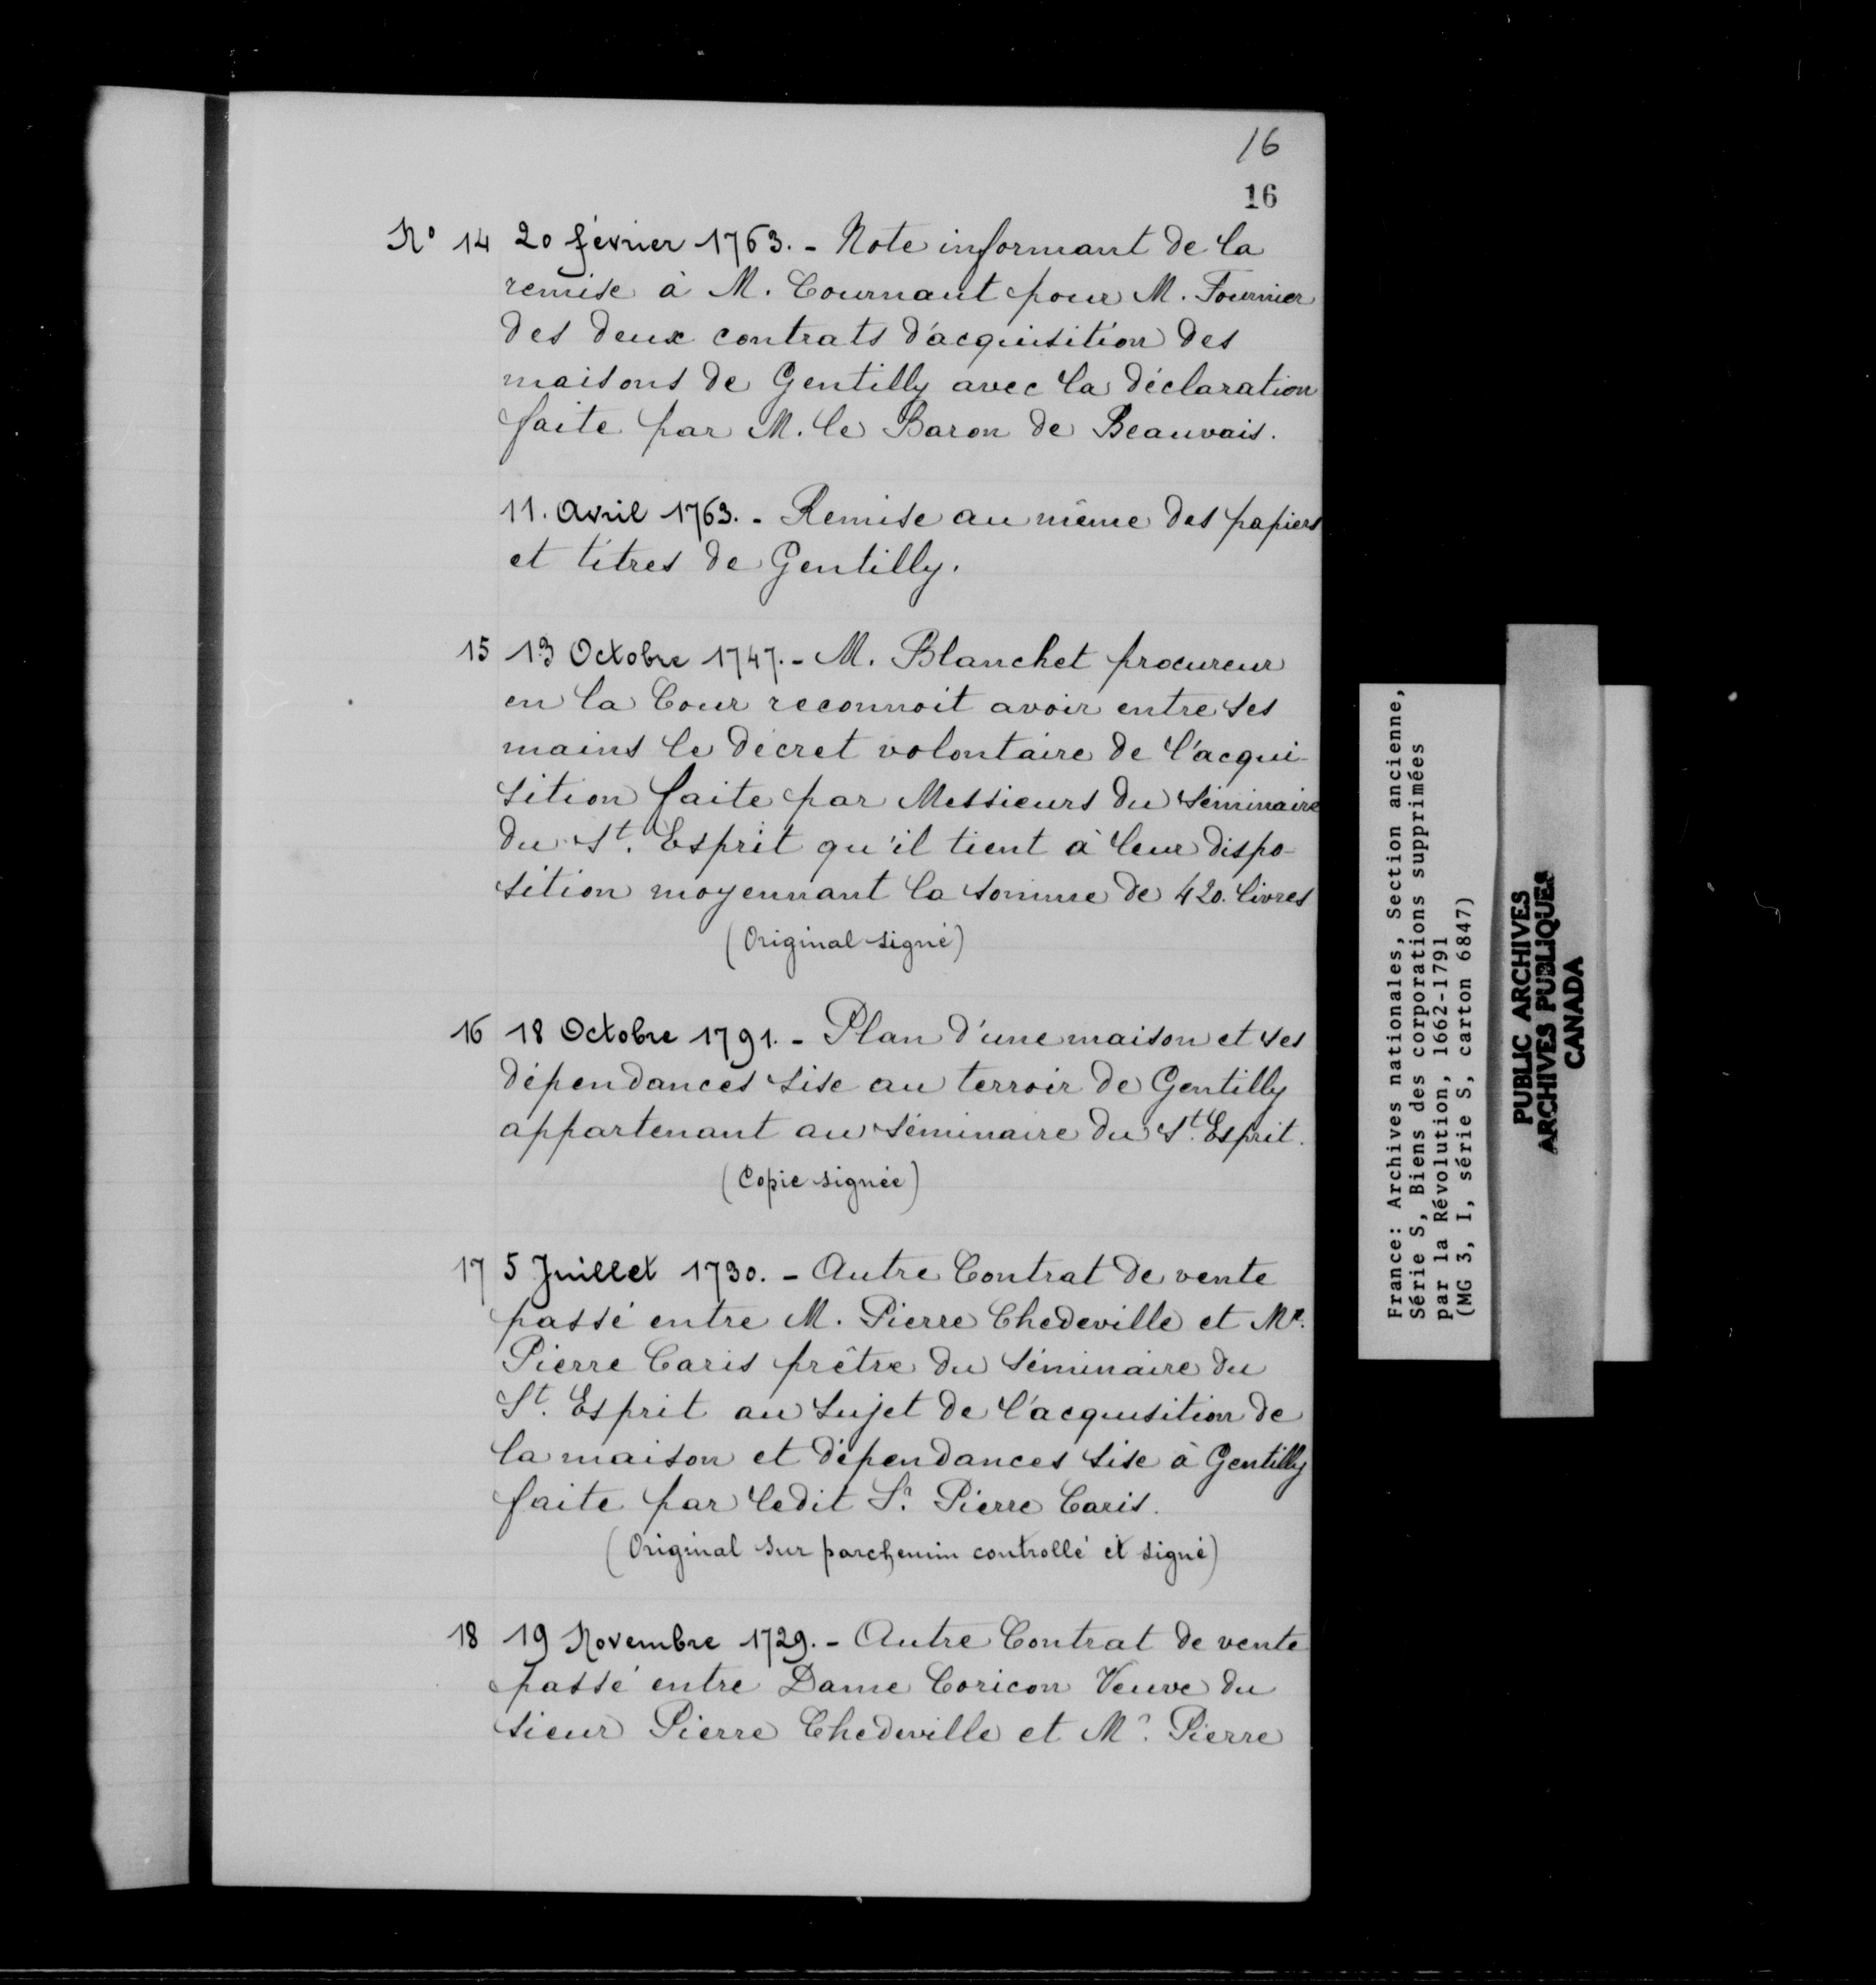 16
16
No 14 20 février 1763. - Note informant de la
remise à M. Cournant pour M. Fournier
des deux contrats d'acquisition des
maisons de Gentilly avec la déclaration
faite par M. le Baron de Beauvais.
11. Avril 1763. - Remise au même des papiers
et titres de Gentilly.
15 13 Octobre 1747. - M. Blanchet procureur
en la Cour reconnoit avoir entre ses
mains le décret volontaire de l'acqui-
sition faite par Messieurs du séminaire
du St. Esprit qu'il tient à leur dispo-
sition moyennant la somme de 420. livres
(Original signé)
16 18 Octobre 1791. - Plan d'une maison et ses
dépendances sise au terroir de Gentilly
appartenant au séminaire du St. Esprit.
(Copie signée)
17 5 Juillet 1730. - Autre Contrat de vente
passé entre M. Pierre Chedeville et Mr.
Pierre Caris prêtre du séminaire du
St. Esprit au sujet de l'acquisition de
la maison et dépendances sise à Gentilly
faite par ledit Sr. Pierre Caris.
(Original sur parchemin controllé et signé)
18 19 Novembre 1729. - Autre Contrat de vente
passé entre Dame Coricon Veuve du
sieur Pierre Chedeville et Mr. Pierre
France: Archives nationales, Section ancienne,
Série S, Biens des corporations supprimées
par la Révolution, 1662-1791
(MG 3, I, série S, carton 6847)
PUBLIC ARCHIVES
ARCHIVES PUBLIQUES
CANADA